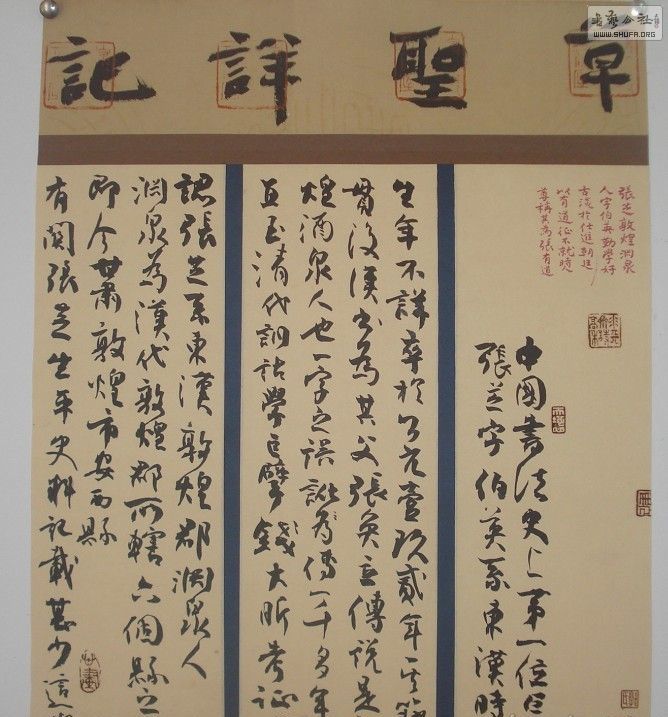 书艺公社
WWW.SHUFA.ORG
草聖詳記
張芝敦煌淵泉
人字伯英勤學好
古淡於仕進朝廷
以有道征不就時人
尊稱其為張有道
中國書法史上第一位巨
張芝字伯英系東漢時
生年不詳卒於公元壹玖貳年其籍
貫後漢書為其父張奐立傳說是
煌酒泉人也一字之誤訛為傳一千多年
直至清代訓詁學巨擘錢大昕考証
認張芝系東漢敦煌郡淵泉人
淵泉為漢代敦煌郡所轄六個縣之
即今甘肅敦煌市安西縣
有關張芝生平史料記載甚少這